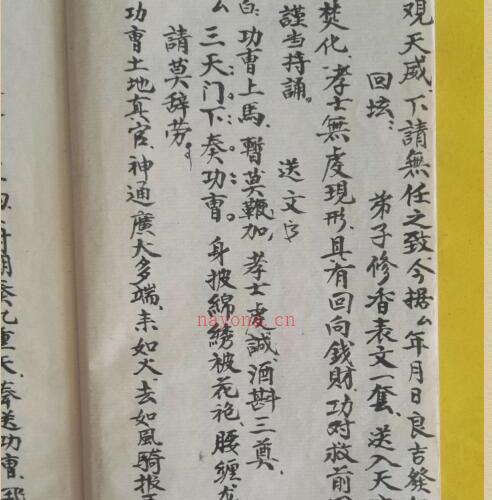 观天威、下請無任之致今据厶年月日良吉發
回坛: 弟子修香表文一套、送入天
焚化、孝士無虔現形、具有回向錢財、功对救前
謹当持誦。 送文字
白:功曹上馬、暫莫鞭加、孝士虔誠、酒斟三奠、
厶三天门下奏功曹。身披綿綉被花袍、腰缠
請莫辞劳。
功曹土地真官、神通廣大多端、未如火、去如風騎报
重天、奏送功曹、
nayona.cn